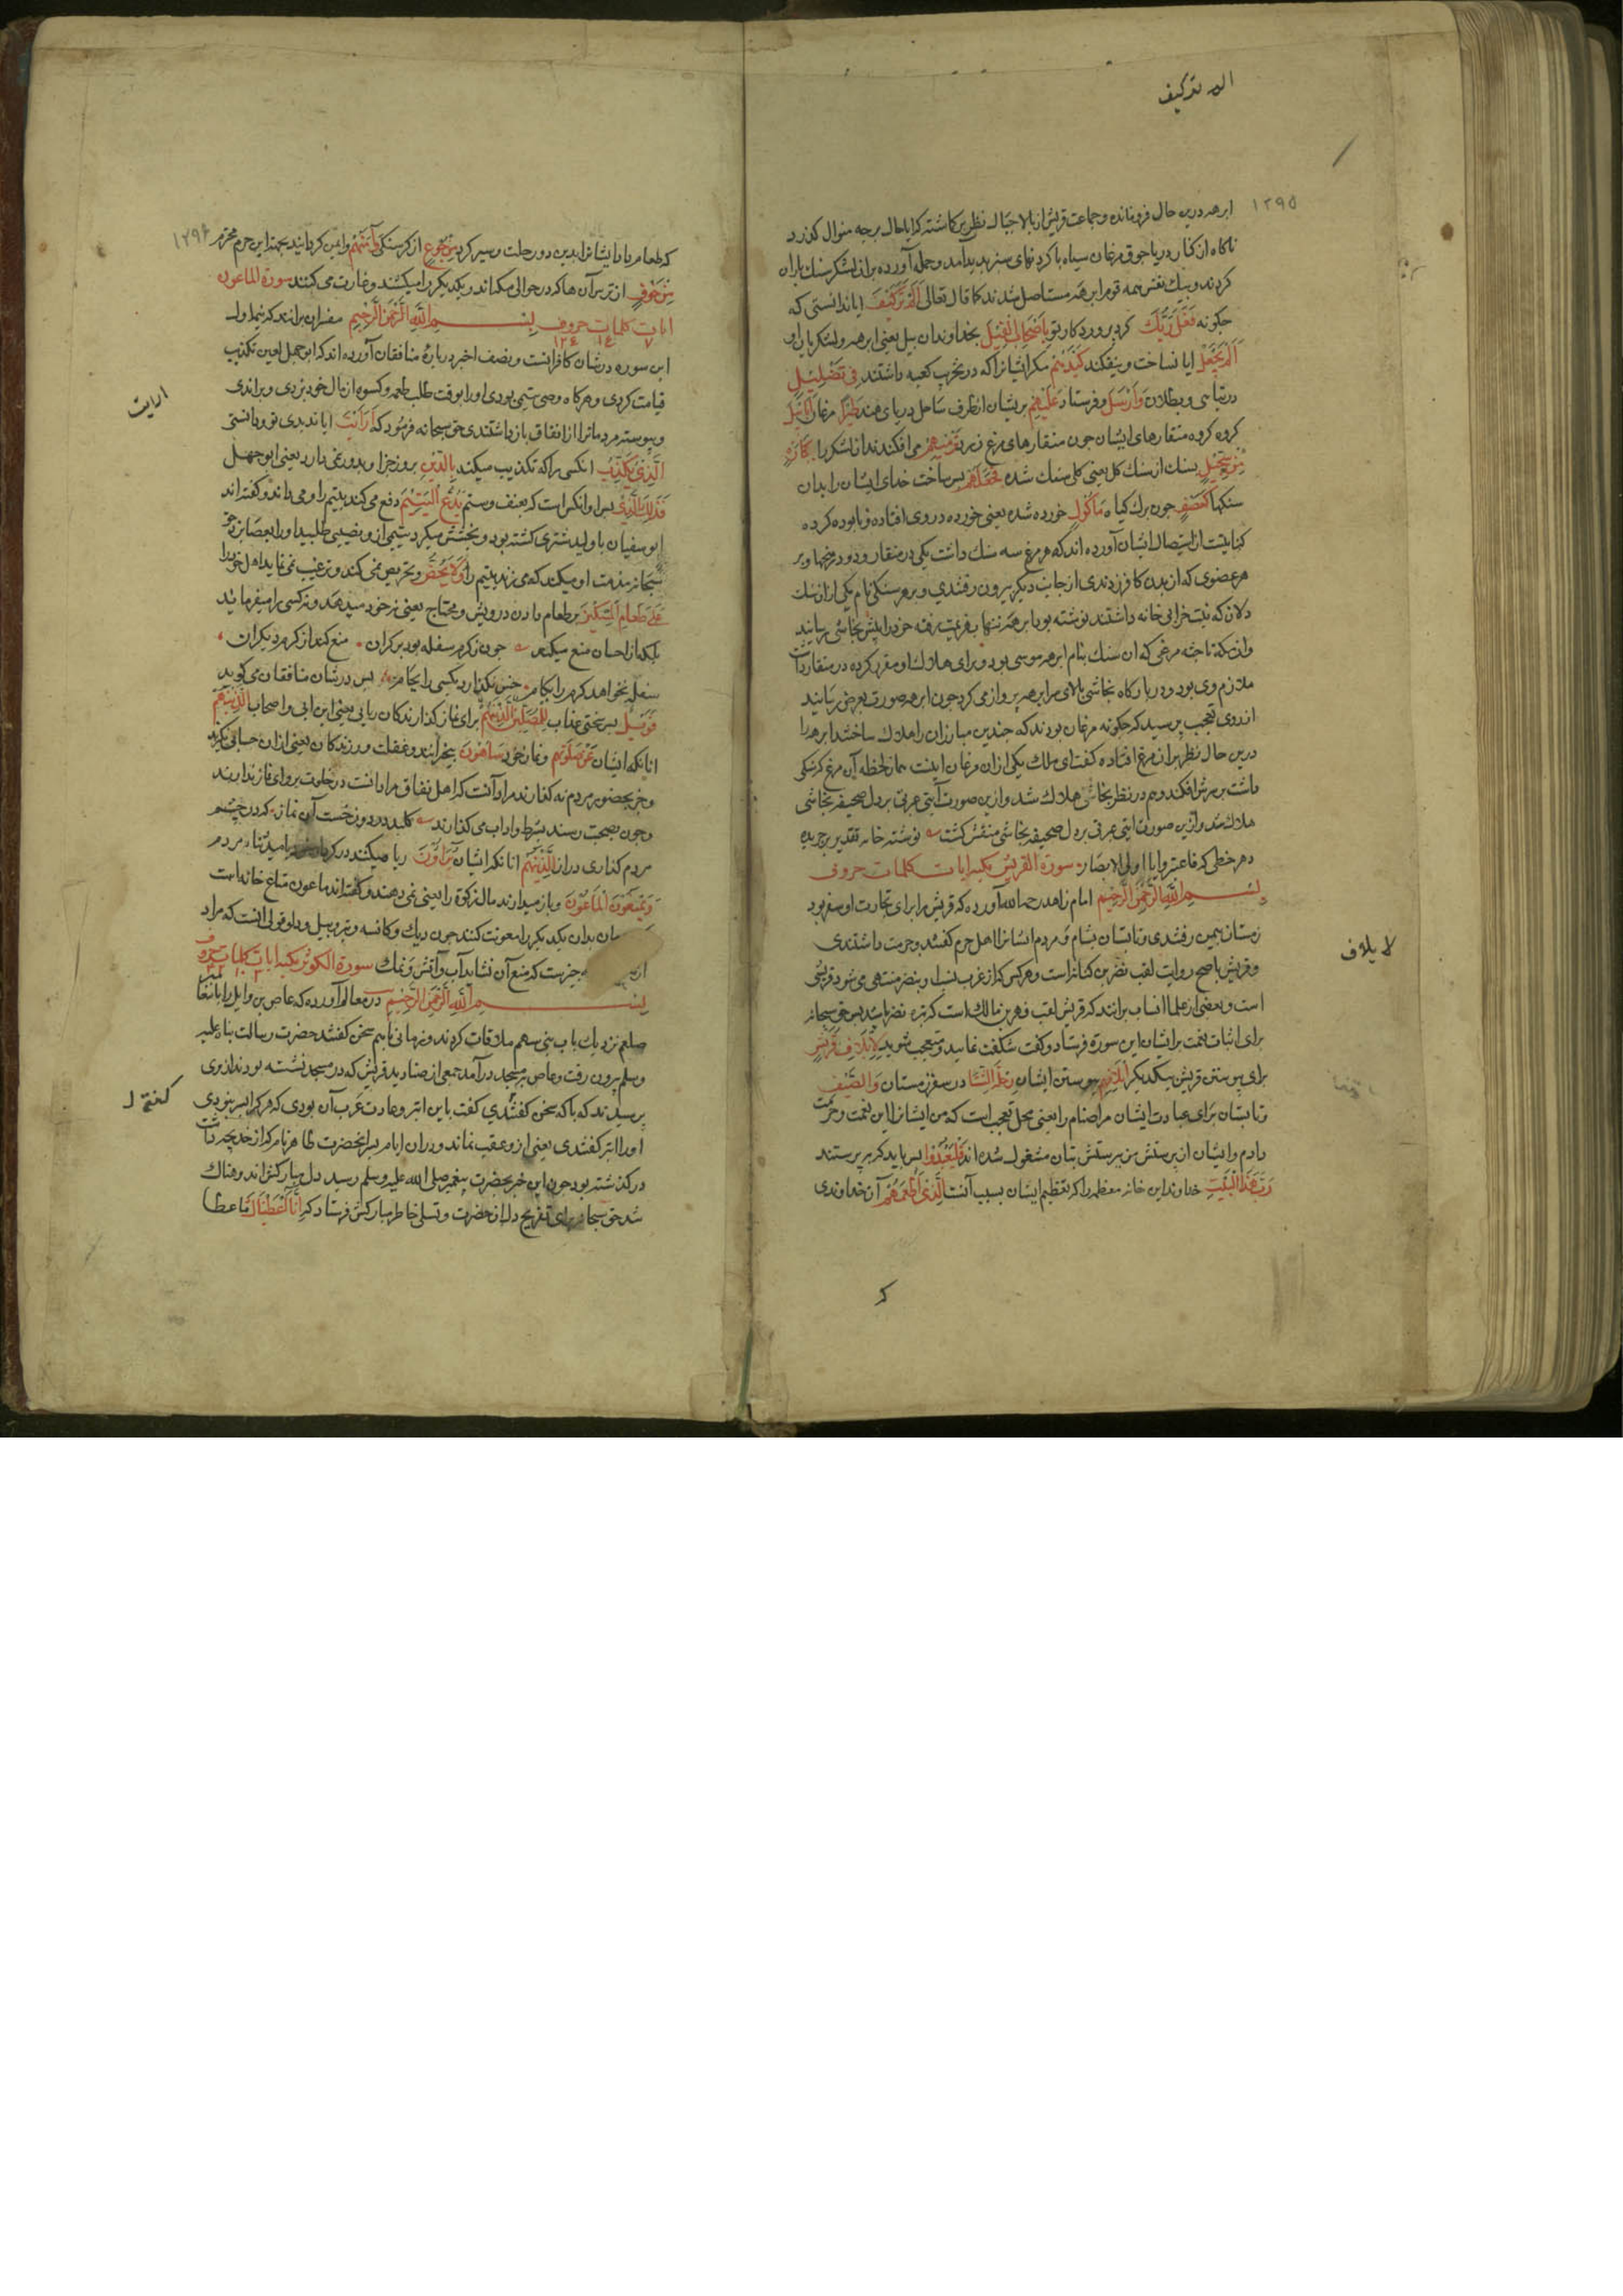 الم تر كيف
۱۲۹۵
ابرهه درین حال فرو مانده و جماعت قریش از بالا جبال نظر می کاشتند که ایا حال برچه منوال کذرد
ناکاه از کنار دریا جوق مرغان سیاه با کردنهای سبز پدید آمد و حمله آورده بران لشکر سنك باران
کردند و بیك نفس همه قوم ابرهه مستاصل شدند کما قال تعالی اَلَمْ تَرَ كَيْفَ ایا ندانستی که
چکونه فَعَلَ رَبُّكَ کرد پروردکار تو بِاَصْحَابِ الْفِيْلِ بخداوندان پیل یعنی ابرهه و لشکریان او
اَلَمْ يَجْعَلْ ایا نساخت و بیفکند كَيْدَهُمْ مکر ایشانرا که در تخریب کعبه داشتند فِىْ تَضْلِيْلٍ
در تباهی و بطلان وَاَرْسَلَ و فرستاد عَلَيْهِمْ بریشان از طرف ساحل دریای هند طَيْرًا مرغان اَبَابِيْلَ
کروه کروه منقارهای ایشان چون منقارهای مرغ زرد تَرْمِيْهِمْ می افکندند ان لشکر را بِحِجَارَةٍ
مِنْ سِجِّيْلٍ بسنك از سنك کل یعنی کلی سنك شده فَجَعَلَهُمْ پس ساخت خدای ایشان را بدان
سنکها كَعَصْفٍ چون برك کیاه مَأْكُوْلٍ خورده شده یعنی خورده در وی افتاده و نابوده کرده
کنایتست از استیصال ایشان آورده اند که هر مرغ سه سنك داشت یکی در منقار و دو در پنجها و بر
هر عضوی که از بدن کافر زدندی از جانب دیکر بیرون رفتندی و بر هر سنکی نام یکی از ان سنك
دلان که نیت خرابی خانه داشتند نوشته بود ابرهه تنها بهزیمت رفته خود را پیش نجاشی رسانید
و از مکه تا حبشه مرغی که ان سنك بنام ابرهه موسی بود و برای هلاك او مقرر کرده در منقار داشت
ملازم وی بود و در بارکاه نجاشی بالای سر ابرهه پرواز می کرد چون ابرهه صورت بعرض رسانید
از روی تعجب پرسید که چکونه مرغان بودند که چندین مبارزان را هلاك ساختند ابرهه را
درین حال نظر بران مرغ افتاده کفت ای ملك یکی از ان مرغان اینست همان لحظه آن مرغ کوسنکی
داشت بر سرش افکند و هم در نظر نجاشی هلاك شد و ازین صورت آیتی عبرتی بر دل صحیفه نجاشی
هلاك شد و ازین صورت ایتی عبرتی بر دل صحیفه نجاشی منقش کشت نوشته خامه تقدیر بر جریده
دهر خطی که فاعتبروا یا اولی الابصار سورة القريش مكية ايات كلمات حروف
بسم الله الرحمن الرحيم امام زاهد رحمه الله آورده که قریش را برای تجارت او سفر بود
زمستان بیمن رفتندی و تابستان بشام و مردم ایشانرا اهل حرم کفتند و حرمت داشتندی
و قریش باصح روایت لقب نضر بن کنانه است و هر کس که از عرب نسب او بنضر منتهی می شود قریشی
است و بعضی از علما انساب برانند که قریش لقب فهر بن مالك است که نبیره نضر باشد پس حق سبحانه
برای اثبات نعمت بر ایشان این سوره فرستاد و کفت شکفت نمایید و متعجب شوید لِاِيْلَافِ قُرَيْشٍ
برای پیوستن قریش بیکدیکر اِيْلَافِهِمْ پیوستن ایشان رِحْلَةَ الشِّتَاءِ در سفر زمستان وَالصَّيْفِ
و تابستان برای عبادت ایشان مر اصنام را یعنی محل تعجب است که من ایشانرا این نعمت و حرمت
دادم و ایشان از پرستش من بپرستش بتان مشغول شده اند فَلْيَعْبُدُوْا پس باید که بپرستند
رَبَّ هٰذَا الْبَيْتِ خداوند این خانه معظم را که تعظیم ایشان بسبب آنست الَّذِىْ اَطْعَمَهُمْ آن خداوندی
لا يلاف
که
۱۲۹۶
که طعام داد ایشانرا بدین دو رحلت و سیر کرد مِنْ جُوْعٍ از کرسنکی وَاٰمَنَهُمْ و ایمن کردانید بجهة این حرم محترم
مِنْ خَوْفٍ از ترس آن ها که در حوالی مکه اند و یکدیکر را میکشند و غارت می کنند سورة الماعون
ايات كلمات حروف بسم الله الرحمن الرحيم مفسران برانند که نیمه اول
٧ ١٢٤
این سوره در شان کافرانست و نصف اخیر در باره منافقان آورده اند که ابو جهل لعین تکذیب
قیامت کردی و هر کاه وصی یتیمی بودی او را بوقت طلب طعمه و کسوه از مال خود بزدی و براندی
و پیوسته مردمانرا از انفاق باز داشتندی حق سبحانه فرمود که اَرَاَيْتَ ایا ندیدی تو و دانستی
الَّذِىْ يُكَذِّبُ انکسی را که تکذیب میکند بِالدِّيْنِ بروز جزا و باور نمی دارد یعنی ابو جهل
فَذٰلِكَ الَّذِىْ پس او انکس است که بعنف و ستم يَدُعُّ الْيَتِيْمَ دفع می کند یتیم را و می راند و کفته اند
ابو سفیان یا ولید شتری کشته بود و بخشش میکرد یتیمی ازو نصیبی طلبید او را بعصا بزد حق
سبحانه مذمت او میکند که می زند یتیم را وَلَا يَحُضُّ و تحریص نمی کند و ترغیب نمی نماید اهل خود را
عَلٰى طَعَامِ الْمِسْكِيْنِ بر طعام دادن درویش و محتاج یعنی نه خود میدهد و نه کسی را میفرماید
بلکه از احسان منع میکند چون ز کرم سفله بود بر کران منع کند از کرم دیکران
سفله نخواهد کرم را بکام خس نکذارد بکسی را بجام پس در شان منافقان می کوید
فَوَيْلٌ پس سختی عذاب لِلْمُصَلِّيْنَ برای نماز کذارندکان ریایی یعنی ابن ابی و اصحاب الَّذِيْنَ هُمْ
انانکه ایشان عَنْ صَلٰوتِهِمْ و نماز خود سَاهُوْنَ بیخبرانند و غفلت ورزندکان یعنی از ان حسابی نکیرند
و جز بحضور مردم نه کذارند مراد آنست که اهل نفاق مراد انست در خلوت پروای نماز ندارند
و چون بصحبت رسند بشرط و اداب می کذارند کلید در دوزخست آن نماز که در چشم
مردم کذاری دراز الَّذِيْنَ هُمْ انانکه ایشان يُرَاؤُنَ ریا میکنند در کردار خود بامید ثناء مردم
وَيَمْنَعُوْنَ الْمَاعُوْنَ و باز میدارند مال زکوة را یعنی نمی دهند و کفته اند ماعون متاع خانه است
بدان یکدیکر را معونت کنند چون دیك و کاسه و تبر و بیل و دلو قولی انست که مراد
چیزیست که منع آن نشاید آب و آتش و نمك سورة الكوثر مكية ايات كلمات حروف
بسم الله الرحمن الرحيم در معالم آورده که عاص بن وایل را با
صلعم نزدیك باب بنی سهم ملاقات کردند و زمانی باهم سخن کفتند حضرت رسالت پناه علیه
وسلم بیرون رفت و عاص بمسجد در آمد جمعی از صنادید قریش که در مسجد نشسته بودند از وی
پرسیدند که با که سخن کفتندی کفت با این ابتر و عادت عرب آن بودی که هر کرا پسر نبودی
او را ابتر کفتندی یعنی ازو عقب نماند و دران ایام پسر انحضرت طاهر نام که از خدیجه داشت
درکذشته بود چون این خبر بحضرت پیغمبر صلی الله علیه وسلم رسید دل مبارکش اندوهناك
شد حق سبحانه برای تفریح دل انحضرت و تسلی خاطر مبارکش فرستاد که اِنَّا اَعْطَيْنَاكَ ما عطا
ارايت